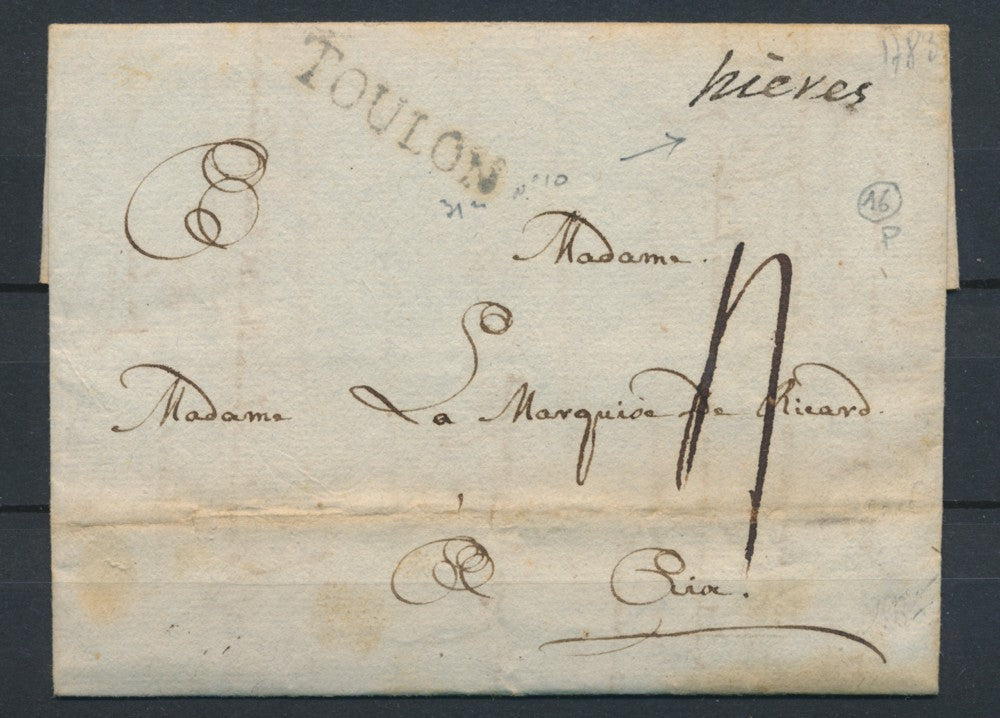 TOULON
hières
1783
31 n° 10
16
P
A Madame
Madame La Marquise De Ricard.
A Aix.